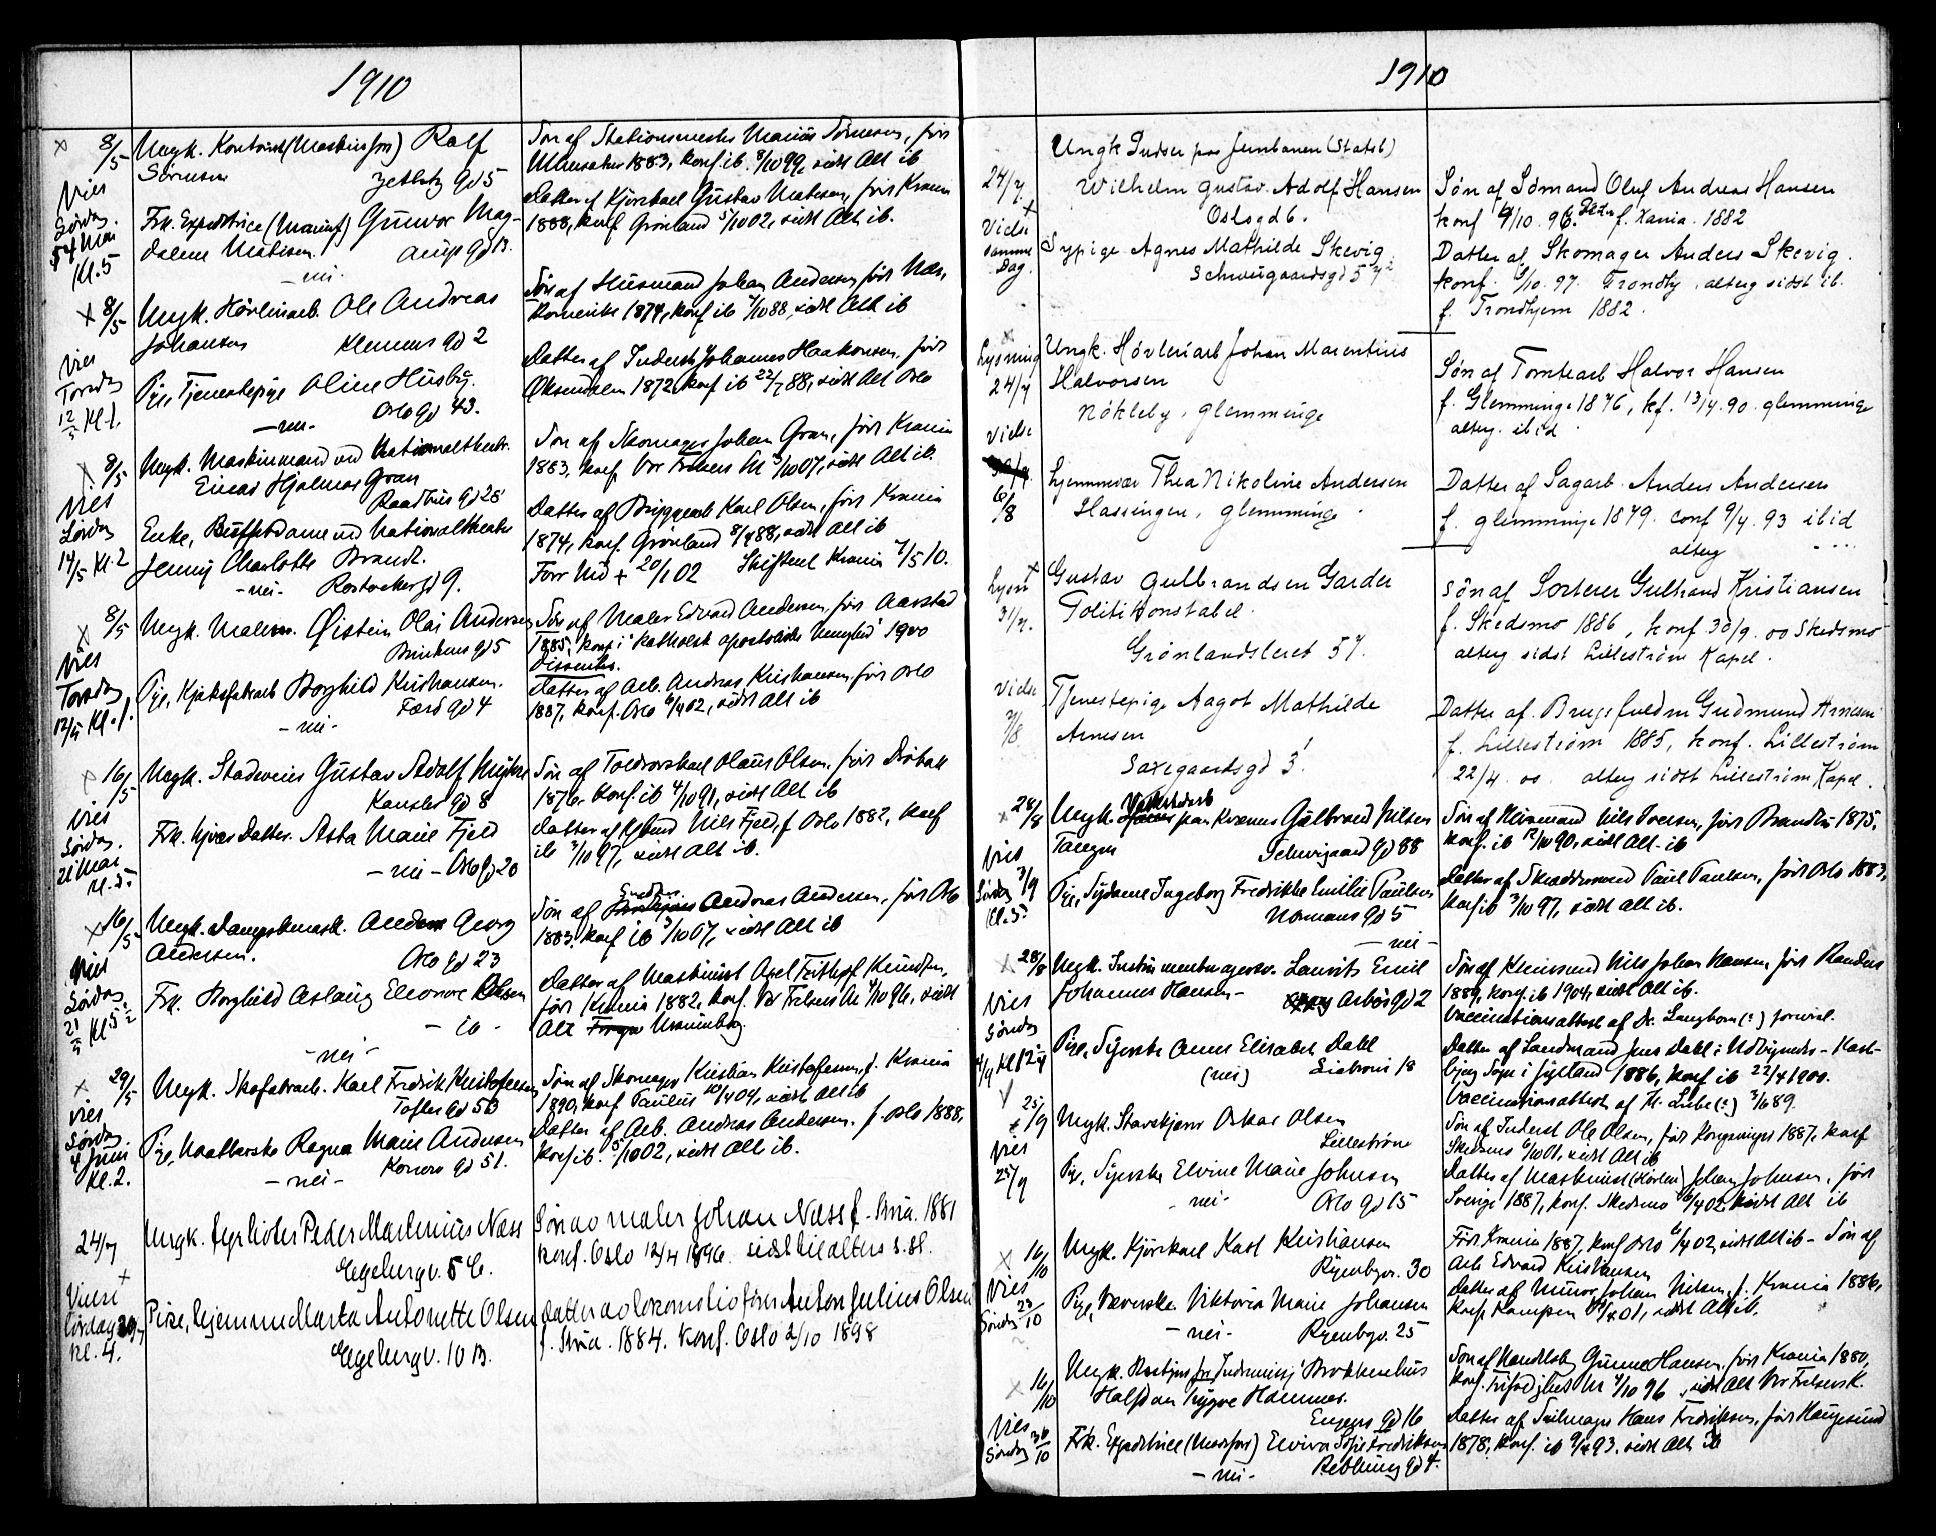 1910
8/5
Ungk. Kontorist (Maskinfor) Rolf
Sørensen
gd 5
Vies
Lørdag
Mai
Kl. 5
Frk. Expeditrice Gunvor Mag-
dalene Madsen
- nei -
Søn af Stationsmester Marius Sørensen, født
1883, konf. ib. 8/10 99, sidst Alt ib
Datter af Kjørekarl Gustav Madsen, født Krania
1888, konf Grønland 5/10 02, sidst Alt. ib.
8/5
Ungk. Høvleriarb. Ole Andreas
Johansen
Klemens gd 2
Vies
Torsdag
12/5 Kl. 1.
Pige, Tjenestepige Oline Husby.
Oslo gd 43.
- nei -
Søn af Husmand Johan Andersen født Næs,
Romerike 1874, konf ib 7/10 88, sidst Alt ib
Datter af Inderst Johannes Haakonsen, født
Øksendalen 1872, konf ib 22/7 88, sidst Alt Oslo
8/5
Ungk. Maskinmand ved Nationaltheatr.
Einar Hjalmar Gran
Raadhus gd 28
Vies
Lørdag
14/5 Kl. 2
Enke, Buffetdame ved Nationaltheater
Jenny Charlotte Brandt.
- nei - Rostockergd 9.
Søn af Skomager Johan Gran, født Krania
1883, konf Vor Frelsers M 3/10 07, sidst Alt ib.
Datter af Bryggearb Karl Olsen, født Krania
1874, konf. Grønland 8/4 88, sidst Alt ib
Forr Md + 20/1 02 Skifteatt Krania 7/5 10.
8/5
Ungk. Malersv. Øistein Olai Andersen
gd 5
Vies
Torsdag
12/5 Kl. 1.
Pige, Kjeksfabrarb Borghild Kristiansen.
gd 4
- nei -
Søn af Maler Edvard Andersen, født Aarstad
1885, konf i "katholsk apostoliske menighed" 1900
Dissenter.
Datter af Arb. Andreas Kristiansen, født Oslo
1887, konf. Oslo 6/4 02, sidst Alt ib
16/5
Ungk. Gustav Adolf
Kanslergd 8
Vies
Lørdag.
21 Mai
Kl. 5
Frk. hjv. Datter. Asta Marie Fjeld
- nei - Oslo gd 20
Søn af Toldrorskarl Olaus Olsen, født Drøbak
1876, konf. ib 4/10 91, sidst Alt ib
Datter af Nils Fjeld, f Oslo 1882, konf
ib 3/10 97, sidst Alt ib.
16/5
Ungk. Anders Georg
Andersen.
Oslo gd 23
Vies
Lørdag
21/5 Kl 5 1/2
Frk. Borghild Aslaug Eleonore Olsen
- ib -
- nei -
Søn af Andreas Andersen, født Oslo
1883, konf ib 3/10 07, sidst Alt ib
Datter af Maskinist Axel Fridthjof Knudsen,
født Krania 1882, konf. Vor Frelsers M 4/10 96, sidst
Alt
29/5
Ungk. Skofabrarb. Karl Fredrik Kristofersen
Toftesgd 53
Vies
Lørdag.
4 Juni
Kl. 2.
Pige, Ragna Marie Andersen
gd 51.
- nei -
Søn af Skomager Kristian Kristofersen, f. Krania
1890, konf Paulus /4 09, sidst Alt ib
Datter af Arb. Andreas Andersen, f. Oslo 1888,
konf ib. 5/10 02, sidst Alt ib.
24/7
Ungk. fyrbøter Peder Martinius Næss
Egebergv. 5 C.
Vielse
lørdag
kl. 4.
Pike, hjemmev Marta Antonette Olsen
Egebergv. 10 B.
Søn av maler Johan Næss f. Kria. 1881
konf. Oslo 12/4 1896. sidst til alters s. st.
Datter av lokomotivfører Anton Julius Olsen
f. Kria. 1884. konf. Oslo 2/10 1898
1910
24/7
Vielse
samme
Dag.
Ungk Pudser paa Jernbanen (Statsb)
Wilhelm Gustav Adolf Hansen
Oslogd 6.
Sypige Agnes Mathilde Skevig.
Schweigaardsgd 57
Søn af Sømand Oluf Andreas Hansen
konf 4/10. 96. f. Xania. 1882
Datter af Skomager Anders Skevig.
konf. 3/10. 97. Trondhj. alterg sidst ib.
f. Trondhjem 1882.
Lysning
24/7
Ungk. Høvleriarb Johan Marentius
Halvorsen
Nøkleby, Glemminge
Vielse
6/8
hjemmevær Thea Nikoline Andersen
Hassingen, Glemminge.
Søn af Tomtearb Halvor Hansen
f. Glemminge 1876, kf. 13/4. 90. glemminge
alterg. ibid
Datter af Sagarb. Anders Andersen
f. glemminge 1879. conf 9/4. 93 ibid
alterg
Lysn
31/7.
Gustav Gulbrandsen Garder
Politikonstabel.
Grønlandsleret 57.
Vielse
/8
Tjenestepige Aagot Mathilde
Arnesen
Saxegaardsgd 3.
Søn af Sorterer Gulbrand Kristiansen
f. Skedsmo 1886, konf 30/9. 00 Skedsmo
alterg sidst Lillestrøm Kapel.
Datter af. Brugsfuldm Gudmund Arnesen
f. Lillestrøm 1885, konf. Lillestrøm
22/4. 00. alterg sidst Lillestrøm Kapel.
28/8
Ungk. paa Kværner Gulbrand Nilsen
Tangen
Schweigaard gd 88
Vies
Lørdag 3/9
Kl. 5
Pige, Sydame Ingeborg Fredrikke Emilie Paulsen
Normans gd 5
- nei -
Søn af Husmand Nils Iversen, født Brandbu 1875,
konf. ib 12/10 90, sidst Alt. ib
Datter af Skræddersvend Paul Paulsen, født Oslo 1883,
konf ib 3/10 97, sidst Alt ib.
28/8
Ungk. Instrumentmagersv. Laurits Emil
Johannes Hansen -
gd 2
Vies
Søndag
4/9
Pige, Syerske Anne Elisabeth Dahl
(nei)
18
Søn af Nils Johan Hansen, født Randers
1889, konf. ib 1904, sidst Alt ib.
Vaccinationsattest af Dr. Langhorn (?)
Datter af Landmand Jens Dahl i Udbyneder - Kast-
bjerg Sogn i Jylland 1886, konf ib 22/4 1900.
Vaccinationsattest af Kl. Lube (?) 3/6 89.
25/9
Ungk. Oskar Olsen
Lillestrøm
Vies
25/9
Pige, Syerske Elvine Marie Johnsen
- nei - Oslo gd 15
Søn af Inderst Ole Olsen, født Kongsvinger 1887, konf
Skedsmo 6/10 01, sidst Alt ib
Datter af Maskinist (Høvleri) Johan Johnsen, født
Sverige 1887, konf. Skedsmo /4 02, sidst Alt ib
16/10
Ungk. Kjørekarl Karl Kristiansen
Ryenbgv. 30
Vies
Søndag 23/10
Pige, Væverske Viktoria Marie Johansen
- nei - Ryenbgv. 25
Født Krania 1887, konf Oslo 6/4 02, sidst Alt ib - Søn af
Arb Edvard Kristiansen
Datter af Murer Johan Nilsen, f. Krania 1886,
konf Kampen /4 01, sidst Alt ib.
16/10
Ungk.
Halfdan Trygve Hammer.
gd 16
Vies
Søndag 30/10
Frk. Expeditrice Elvira Sofie Fredriksen
gd 4.
- nei -
Søn af Gunne Hansen, født Krania 1880,
konf. Trefoldighed M 4/10 96, sidst Alt Vor Frelsers K.
Datter af Seilmager Hans Fredriksen, født Haugesund
1878, konf. ib 9/4 93. sidst Alt ib